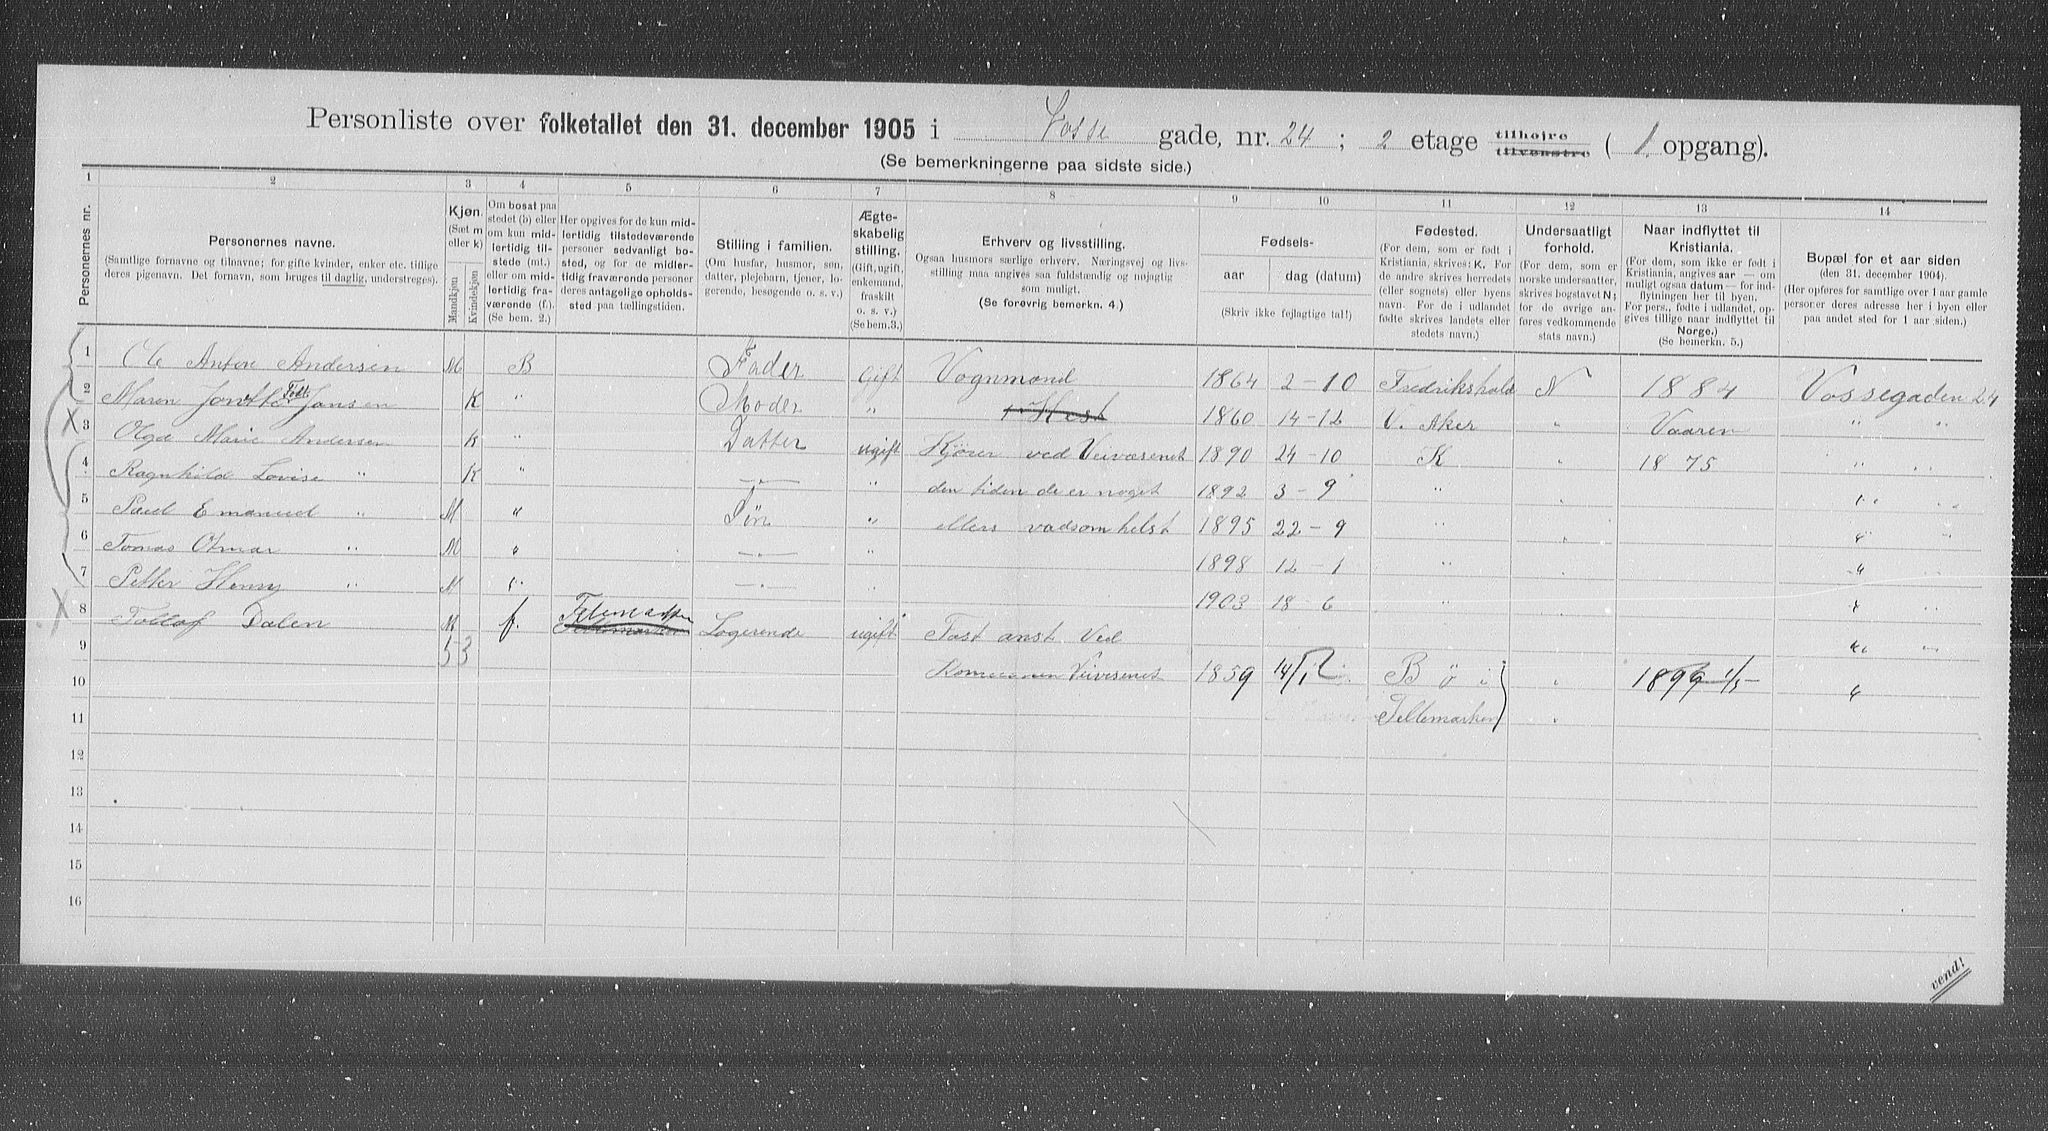 Personliste over folketallet den 31. december 1905 i Vosse gade, nr. 24 ; 2 etage tilhøjre tilvenstre ( 1. opgang).
(Se bemerkningerne paa sidste side.)
1 2 3 4 5 6 7 8 9 10 11 12 13 14
Personernes nr.
Personernes navne.
(Samtlige fornavne og tilnavne; for gifte kvinder, enker etc. tillige deres pigenavn. Det fornavn, som bruges til daglig, understreges).
Kjøn.
(Sæt m eller k)
Mandkjøn
Kvindekjøn
Om bosat paa stedet (b) eller om kun midlertidig tilstede (mt.) eller om midlertidig fraværende (f.).
(Se bem. 2.)
Her opgives for de kun midlertidig tilstedeværende personer sedvanlig bosted, og for de midlertidig fraværende personer deres antagelige opholdssted paa tællingstiden.
Stilling i familien.
(Om husfar, husmor, søn, datter, plejebarn, tjener, logerende, besøgende o. s. v.)
Ægteskabelig stilling.
(Gift, ugift, enkemand, fraskilt o. s. v.)
(Se bem.3.)
Erhverv og livsstilling.
Ogsaa husmors særlige erhverv. Næringsvej og livsstilling maa angives saa fuldstændig og nøjagtig som muligt.
(Se forøvrig bemerkn. 4.)
Fødsels-
aar dag (datum)
(Skriv ikke fejlagtige tal!)
Fødested.
(For dem, som er født i Kristiania, skrives: K. For de andre skrives herredets (eller sognets) eller byens navn. For de i udlandet fødte skrives landets eller stedets navn.)
Undersaatligt forhold.
(For dem, som er norske undersaatter, skrives bogstavet N; for de øvrige anføres vedkommende stats navn.)
Naar indflyttet til Kristiania.
(For dem, som ikke er født i Kristiania, angives aar — om muligt ogsaa datum — for indflytningen her til byen. For pers., fødte i udlandet, opgives tillige naar indflyttet til Norge.)
(Se bemerkn. 5.)
Bopæl for et aar siden
(den 31. december 1904).
(Her opføres for samtlige over 1 aar gamle personer deres adresse her i byen eller paa andet sted for 1 aar siden.)
1 Ole Anton Andersen M B Fader Gift Vognmand 1864 2-10 Fredrikshald N 1884 Vossegaden 24
2 Maren Født Jansen K " Moder " 1860 14-12 V. Aker " Vaaren " "
3 Olga Marie Andersen K " Datter ugift Kjører ved Veivæsenet 1890 24-10 K " 1875 " "
4 Ragnhild Lovise " K " —"— " den tiden de er noget 1892 3-9 " " " "
5 Paul Emanuel " M " Søn " ellers vadsomhelst 1895 22-9 " " " "
6 Tomas Otmar " M " —"— " 1898 12-1 " " "
7 Petter Henry " M " —"— " 1903 18-6 " " " "
8 Tollof Dalen M f. Telemarken Logerende ugift Fast anst ved " "
9 53 Veivesenet 1859 14/12 Bø i " 1899 1/5 "
10 Tellemarken "
11
12
13
14
15
16
vend!